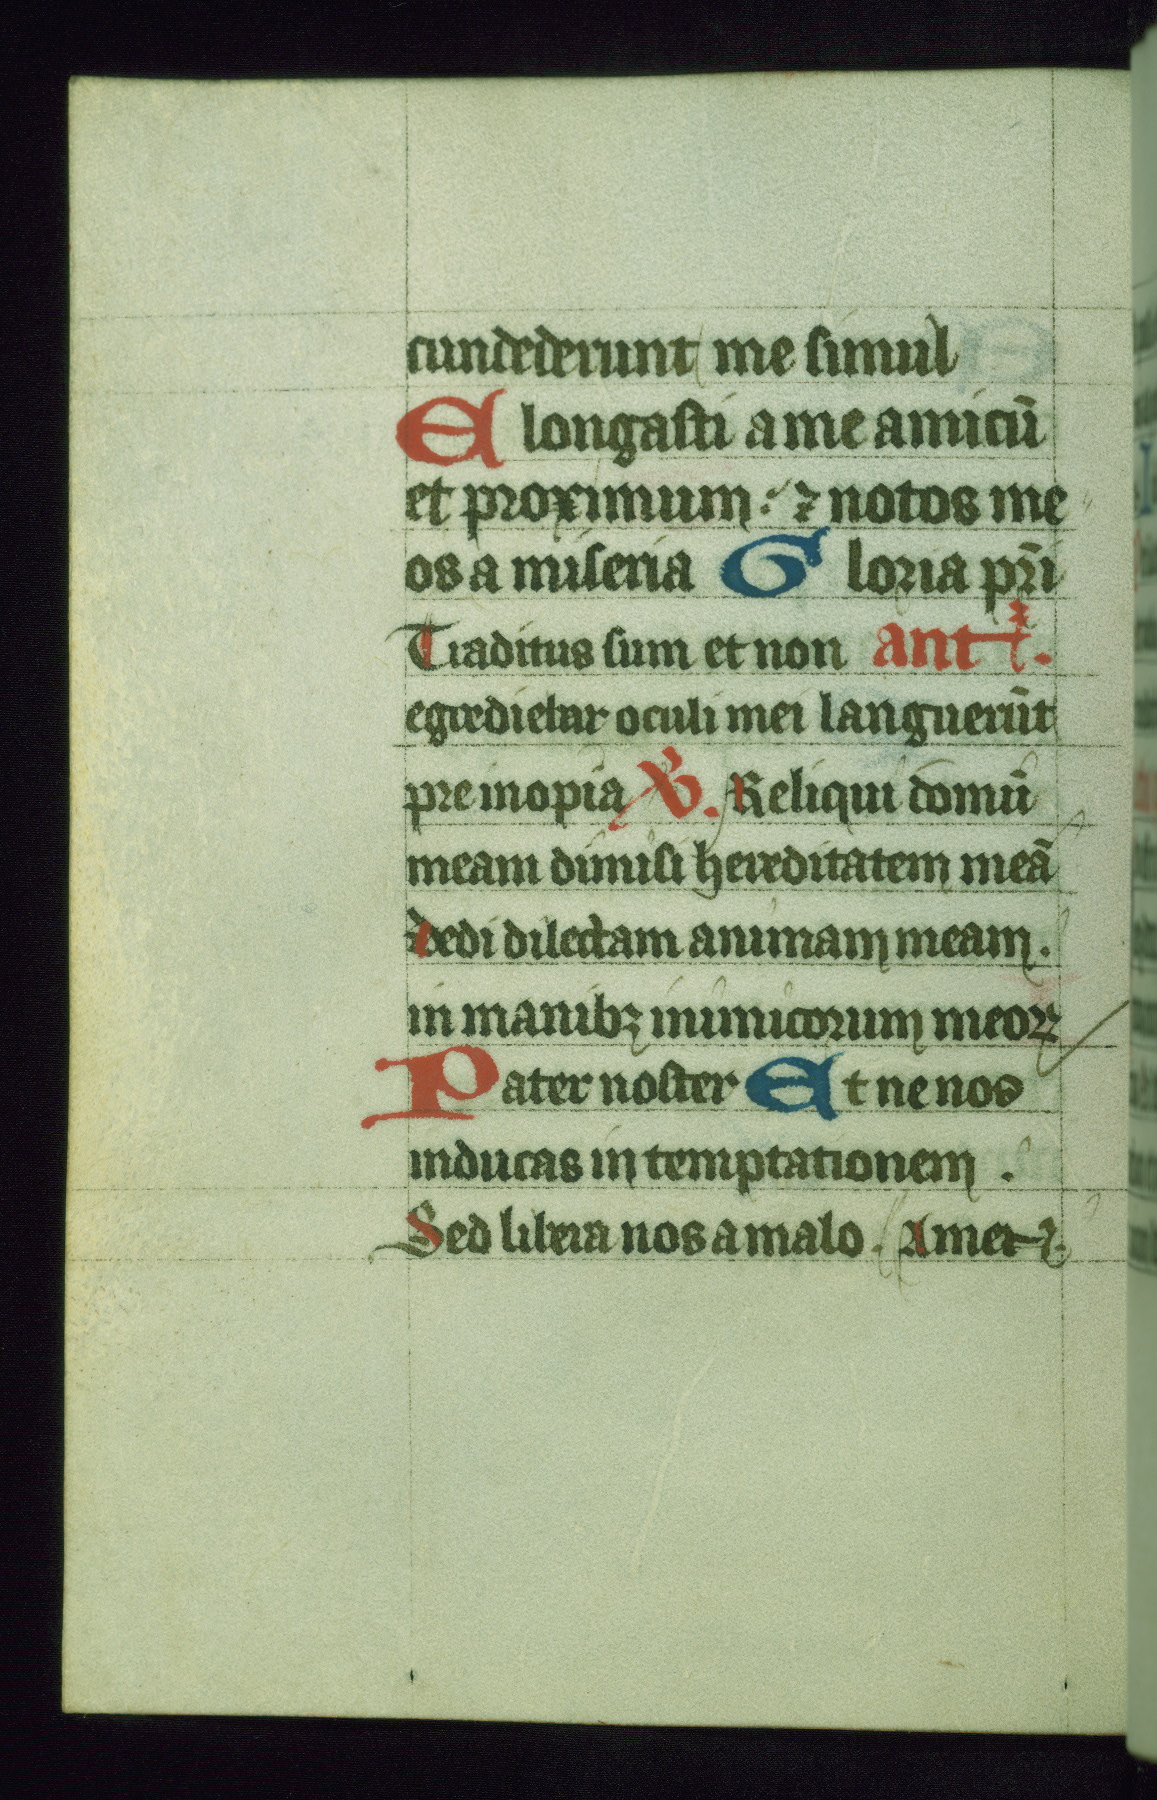 cundederunt me simul
Elongasti a me amicū
et proximum : ⁊ notos me
os a miseria Gloria pr̄i
Traditus sum et non ant̄.
egrediebar oculi mei languerūt
pre inopia ℣. Reliqui domū
meam dimisi hereditatem meā
dedi dilectam animam meam.
in manibꝫ inimicorum meoꝝ
Pater noster Et ne nos
inducas in temptationem .
Sed libera nos a malo. Amen